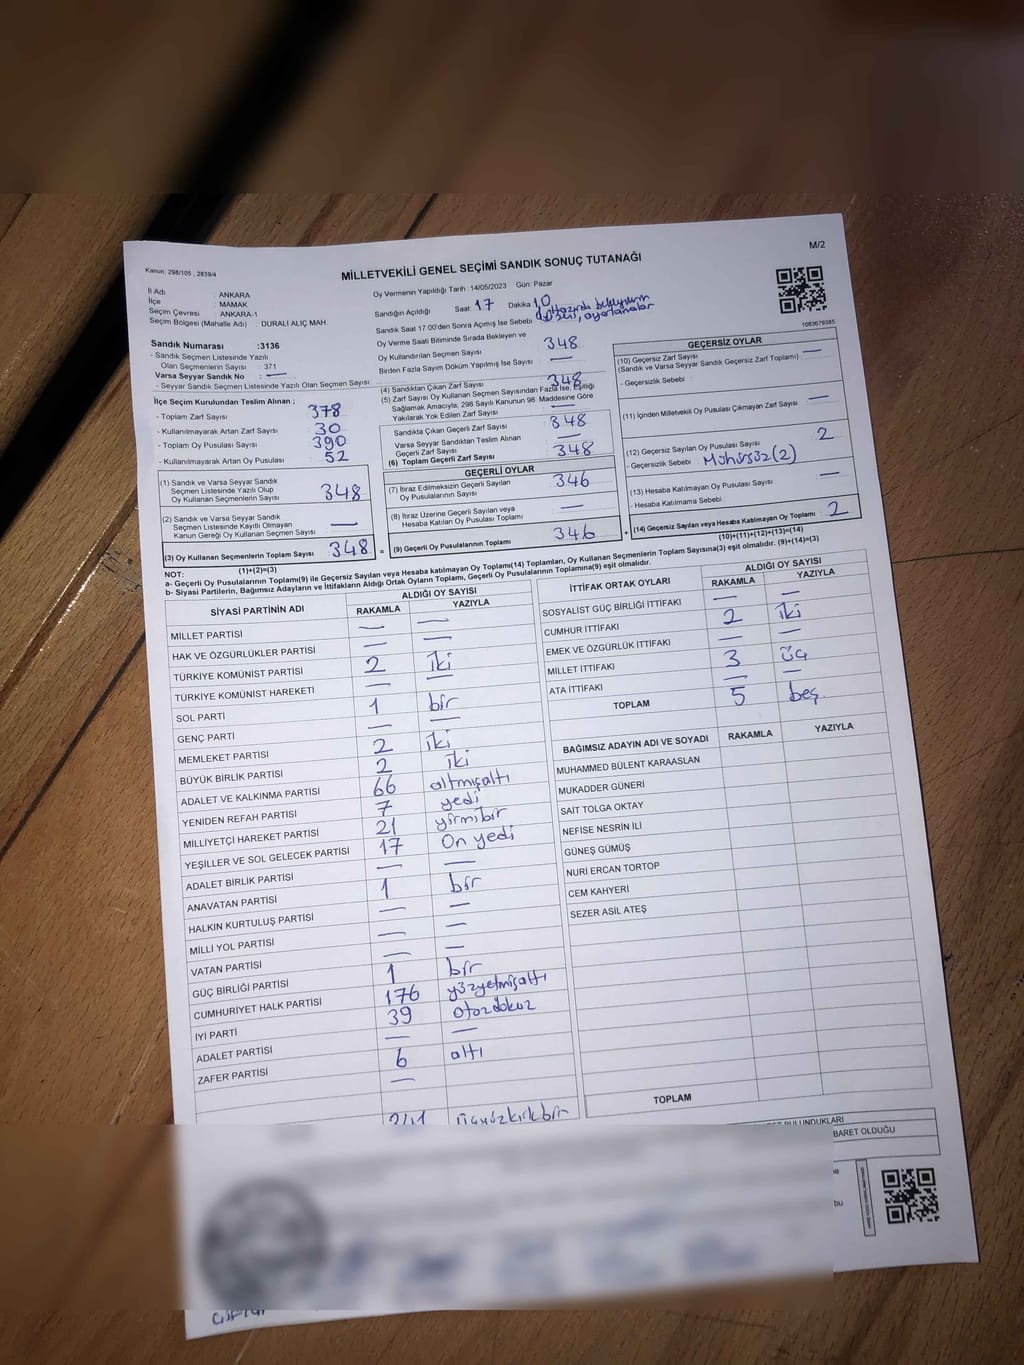 M/2
Kanun: 298/105 , 2839/4
MİLLETVEKİLİ GENEL SEÇİMİ SANDIK SONUÇ TUTANAĞI
İl Adı : ANKARA
İlçe : MAMAK
Seçim Çevresi : ANKARA-1
Seçim Bölgesi (Mahalle Adı) : DURALİ ALIÇ MAH.
Oy Vermenin Yapıldığı Tarih :14/05/2023 Gün: Pazar
Sandığın Açıldığı Saat: 17 Dakika 10
Sandık Saat 17:00'den Sonra Açımış İse Sebebi
Oy Verme Saati Bitiminde Sırada Bekleyen ve
Oy Kullandırılan Seçmen Sayısı 348
Birden Fazla Sayım Döküm Yapılmış İse Sayısı —
1083679385
Sandık Numarası :3136
- Sandık Seçmen Listesinde Yazılı
Olan Seçmenlerin Sayısı : 371
Varsa Seyyar Sandık No : —
- Seyyar Sandık Seçmen Listesinde Yazılı Olan Seçmen Sayısı:
İlçe Seçim Kurulundan Teslim Alınan ;
- Toplam Zarf Sayısı 378
- Kullanılmayarak Artan Zarf Sayısı 30
- Toplam Oy Pusulası Sayısı 390
- Kullanılmayarak Artan Oy Pusulası 52
(1) Sandık ve Varsa Seyyar Sandık
Seçmen Listesinde Yazılı Olup
Oy Kullanan Seçmenlerin Sayısı 348
(2) Sandık ve Varsa Seyyar Sandık
Seçmen Listesinde Kayıtlı Olmayan
Kanun Gereği Oy Kullanan Seçmen Sayısı —
(3) Oy Kullanan Seçmenlerin Toplam Sayısı 348
(1)+(2)=(3)
(4) Sandıktan Çıkan Zarf Sayısı 348
(5) Zarf Sayısı Oy Kullanan Seçmen Sayısından Fazla İse, Eşitliği
Sağlamak Amacıyla, 298 Sayılı Kanunun 98. Maddesine Göre
Yakılarak Yok Edilen Zarf Sayısı —
Sandıkta Çıkan Geçerli Zarf Sayısı 348
Varsa Seyyar Sandıktan Teslim Alınan
Geçerli Zarf Sayısı —
(6) Toplam Geçerli Zarf Sayısı 348
GEÇERLİ OYLAR
(7) İtiraz Edilmeksizin Geçerli Sayılan
Oy Pusulalarının Sayısı 346
(8) İtiraz Üzerine Geçerli Sayılan veya
Hesaba Katılan Oy Pusulası Toplamı —
= (9) Geçerli Oy Pusulalarının Toplamı 346
GEÇERSİZ OYLAR
(10) Geçersiz Zarf Sayısı —
(Sandık ve Varsa Seyyar Sandık Geçersiz Zarf Toplamı)
- Geçersizlik Sebebi :
(11) İçinden Milletvekili Oy Pusulası Çıkmayan Zarf Sayısı —
(12) Geçersiz Sayılan Oy Pusulası Sayısı 2
- Geçersizlik Sebebi : Mühürsüz (2)
(13) Hesaba Katılmayan Oy Pusulası Sayısı —
- Hesaba Katılmama Sebebi :
+ (14) Geçersiz Sayılan veya Hesaba Katılmayan Oy Toplamı 2
(10)+(11)+(12)+(13)=(14)
NOT:
a- Geçerli Oy Pusulalarının Toplamı(9) ile Geçersiz Sayılan veya Hesaba katılmayan Oy Toplamı(14) Toplamları, Oy Kullanan Seçmenlerin Toplam Sayısına(3) eşit olmalıdır. (9)+(14)=(3)
b- Siyasi Partilerin, Bağımsız Adayların ve İttifakların Aldığı Ortak Oyların Toplamı, Geçerli Oy Pusulalarının Toplamına(9) eşit olmalıdır.
SİYASİ PARTİNİN ADI ALDIĞI OY SAYISI
RAKAMLA YAZIYLA
MİLLET PARTİSİ — —
HAK VE ÖZGÜRLÜKLER PARTİSİ — —
TÜRKİYE KOMÜNİST PARTİSİ 2 iki
TÜRKİYE KOMÜNİST HAREKETİ — —
SOL PARTİ 1 bir
GENÇ PARTİ — —
MEMLEKET PARTİSİ 2 iki
BÜYÜK BİRLİK PARTİSİ 2 iki
ADALET VE KALKINMA PARTİSİ 66 altmışaltı
YENİDEN REFAH PARTİSİ 7 yedi
MİLLİYETÇİ HAREKET PARTİSİ 21 yirmibir
YEŞİLLER VE SOL GELECEK PARTİSİ 17 On yedi
ADALET BİRLİK PARTİSİ — —
ANAVATAN PARTİSİ 1 bir
HALKIN KURTULUŞ PARTİSİ — —
MİLLİ YOL PARTİSİ — —
VATAN PARTİSİ — —
GÜÇ BİRLİĞİ PARTİSİ 1 bir
CUMHURİYET HALK PARTİSİ 176 yüzyetmişaltı
İYİ PARTİ 39 otuzdokuz
ADALET PARTİSİ — —
ZAFER PARTİSİ 6 altı
—
341 üçyüzkırkbir
İTTİFAK ORTAK OYLARI ALDIĞI OY SAYISI
RAKAMLA YAZIYLA
SOSYALİST GÜÇ BİRLİĞİ İTTİFAKI — —
CUMHUR İTTİFAKI 2 iki
EMEK VE ÖZGÜRLÜK İTTİFAKI — —
MİLLET İTTİFAKI 3 üç
ATA İTTİFAKI — —
TOPLAM 5 beş
BAĞIMSIZ ADAYIN ADI VE SOYADI RAKAMLA YAZIYLA
MUHAMMED BÜLENT KARAASLAN
MUKADDER GÜNERİ
SAİT TOLGA OKTAY
NEFİSE NESRİN İLİ
GÜNEŞ GÜMÜŞ
NURİ ERCAN TORTOP
CEM KAHYERİ
SEZER ASİL ATEŞ
TOPLAM
BULUNDUKLARI
BARET OLDUĞU
bu